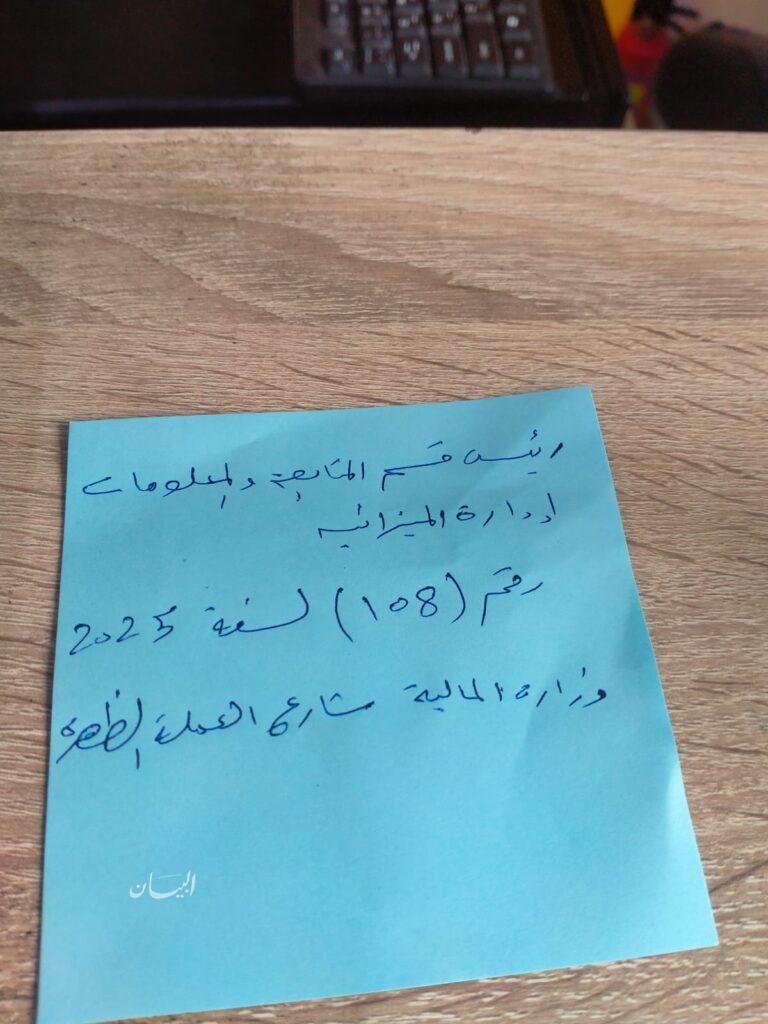 رئيس قسم المتابعة والمعلومات
إدارة الميزانيه
رقم (108) لسنة 2025
وزارة المالية شارع العملة الظهرة
البيان